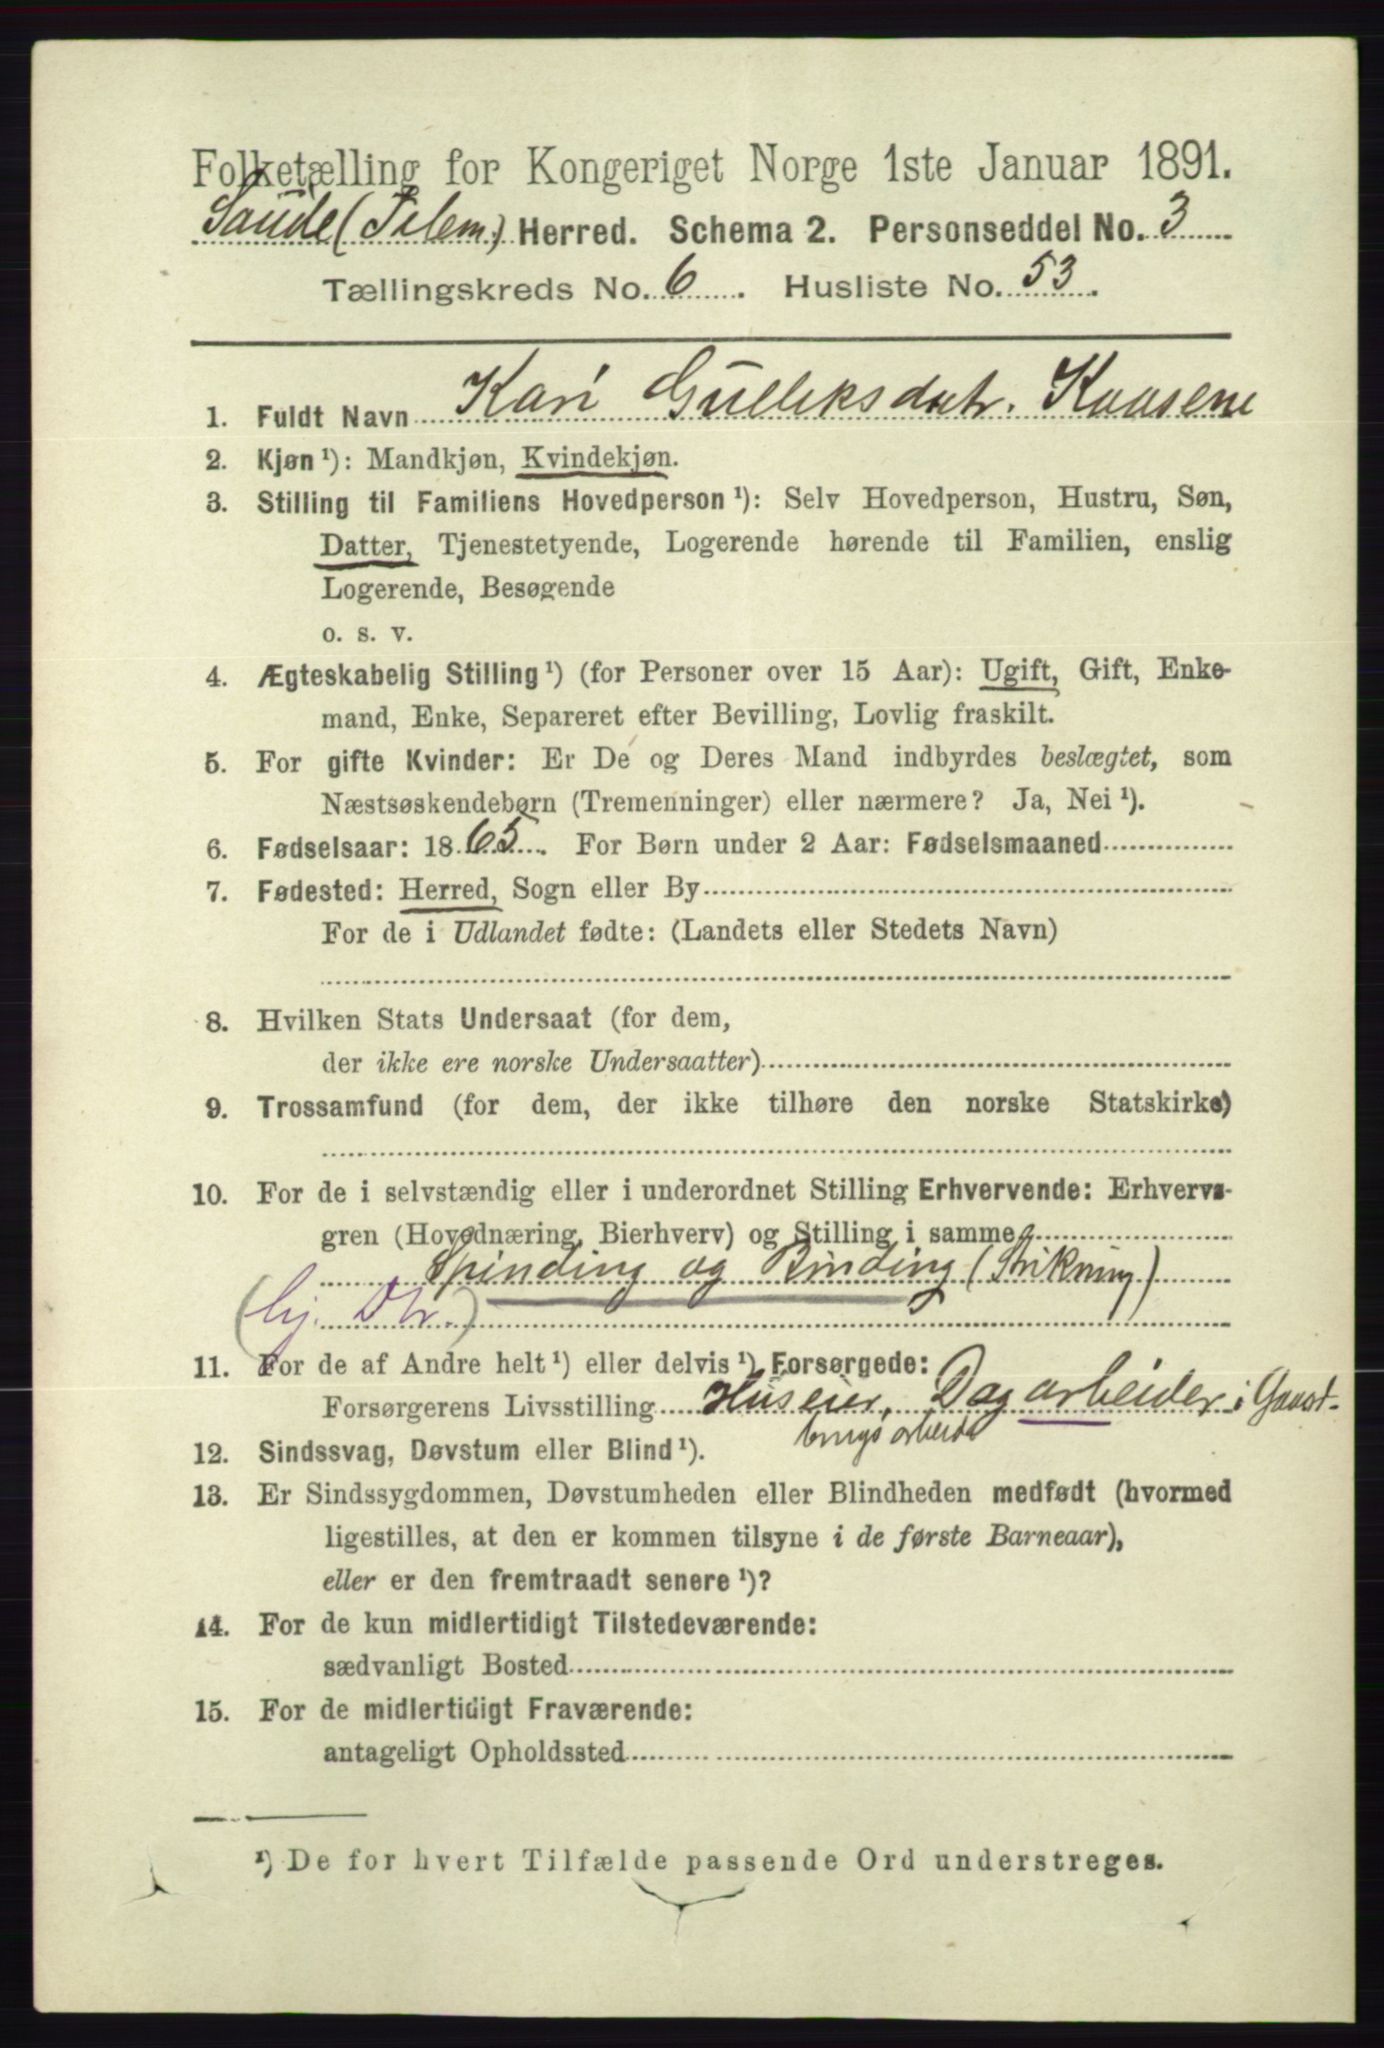 Folketælling for Kongeriget Norge 1ste Januar 1891.
Saude (Telem.) Herred. Schema 2. Personseddel No. 3
Tællingskreds No. 6. Husliste No. 53.
1. Fuldt Navn Kari Gulleksdatr. Kaasene
2. Kjøn ¹): Mandkjøn, Kvindekjøn.
3. Stilling til Familiens Hovedperson ¹): Selv Hovedperson, Hustru, Søn,
Datter, Tjenestetyende, Logerende hørende til Familien, enslig
Logerende, Besøgende
o. s. v.
4. Ægteskabelig Stilling ¹) (for Personer over 15 Aar): Ugift, Gift, Enke-
mand, Enke, Separeret efter Bevilling, Lovlig fraskilt.
5. For gifte Kvinder: Er De og Deres Mand indbyrdes beslægtet, som
Næstsøskendebørn (Tremenninger) eller nærmere? Ja, Nei ¹).
6. Fødselsaar: 1865. For Børn under 2 Aar: Fødselsmaaned
7. Fødested: Herred, Sogn eller By
For de i Udlandet fødte: (Landets eller Stedets Navn)
8. Hvilken Stats Undersaat (for dem,
der ikke ere norske Undersaatter)
9. Trossamfund (for dem, der ikke tilhøre den norske Statskirke)
10. For de i selvstændig eller i underordnet Stilling Erhvervende: Erhvervs-
gren (Hovednæring, Bierhverv) og Stilling i samme
Spinding og Binding (Strikning)
(hj. Dtr.)
11. For de af Andre helt ¹) eller delvis ¹) Forsørgede:
Forsørgerens Livsstilling Huseier, Dagarbeider i Gaard-
brugsarbeide
12. Sindssvag, Døvstum eller Blind ¹).
13. Er Sindssygdommen, Døvstumheden eller Blindheden medfødt (hvormed
ligestilles, at den er kommen tilsyne i de første Barneaar),
eller er den fremtraadt senere ¹)?
14. For de kun midlertidigt Tilstedeværende:
sædvanligt Bosted
15. For de midlertidigt Fraværende:
antageligt Opholdssted
¹) De for hvert Tilfælde passende Ord understreges.